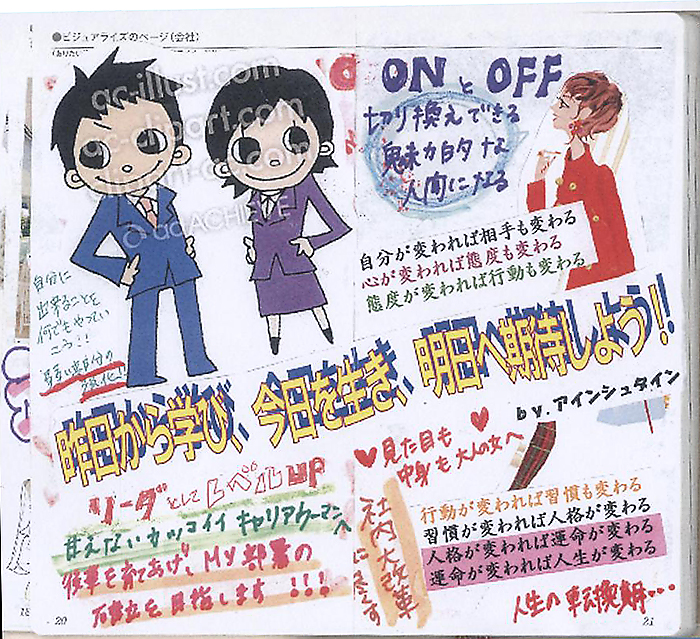 ●ビジュアライズのページ(会社)
ac-illust.com
ac-clipart.com
acACHIEVE
ONとOFF
切り換えできる
魅力的な
人間になる
自分が変われば相手も変わる
心が変われば態度も変わる
態度が変われば行動も変わる
自分に
出来ることを
何でもやってい
こう!!
弱い自分の
強化!!
昨日から学び、今日を生き、明日へ期待しよう!!
by.アインシュタイン
リーダーとしてレベルup
甘えないカッコイイキャリアウーマンへ
後輩を育てあげ、My部署の
確立を目指します!!!
見た目も
中身も大人の女へ
社内大改革
に尽くす
行動が変われば習慣も変わる
習慣が変われば人格が変わる
人格が変われば運命が変わる
運命が変われば人生が変わる
人生の転換期…
20
21